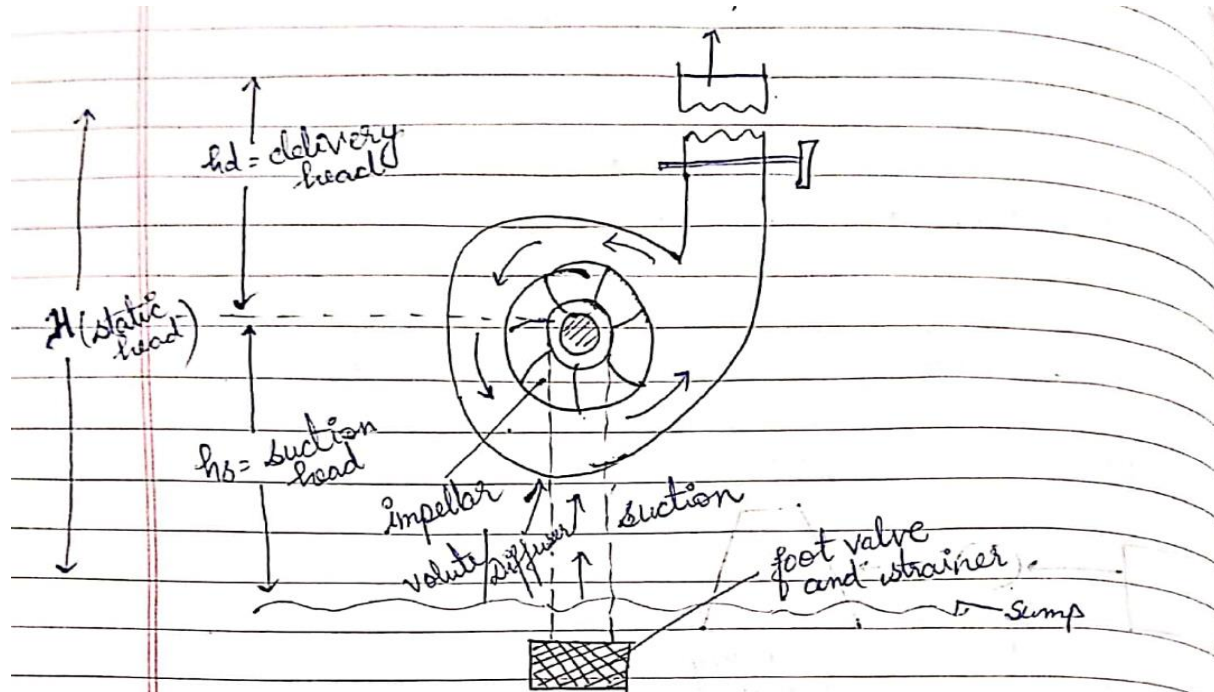 hd = delivery
head
H (static
head)
hs = suction
head
impellar
suction
volute / Diffuser
foot valve
and strainer
sump